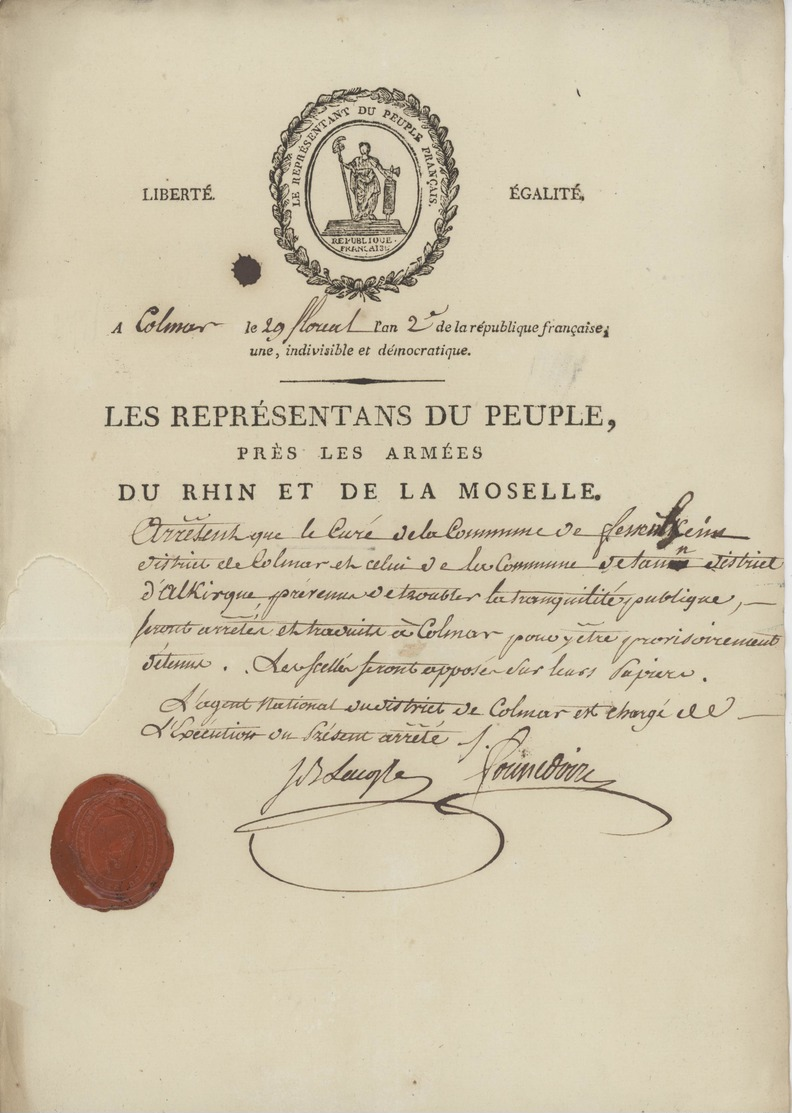 LE REPRÉSENTANT DU PEUPLE FRANÇAIS.
LIBERTÉ.
ÉGALITÉ.
REPUBLIQUE
FRANÇAISE
A Colmar le 29 floreal l'an 2e de la république française,
une, indivisible et démocratique.
LES REPRÉSENTANS DU PEUPLE,
PRÈS LES ARMÉES
DU RHIN ET DE LA MOSELLE.
Arrêtent que le Curé de la Commune de
District de Colmar et celui de la Commune de District
d'Alkirque prévenus de troubler la tranquilité publique,
seront arrêtés et traduits à Colmar pour y être provisoirement
détenus. Les scellés seront apposés sur leurs Papiers.
L'agent National du district de Colmar est chargé de
L'Exécution du Présent arrêté /.